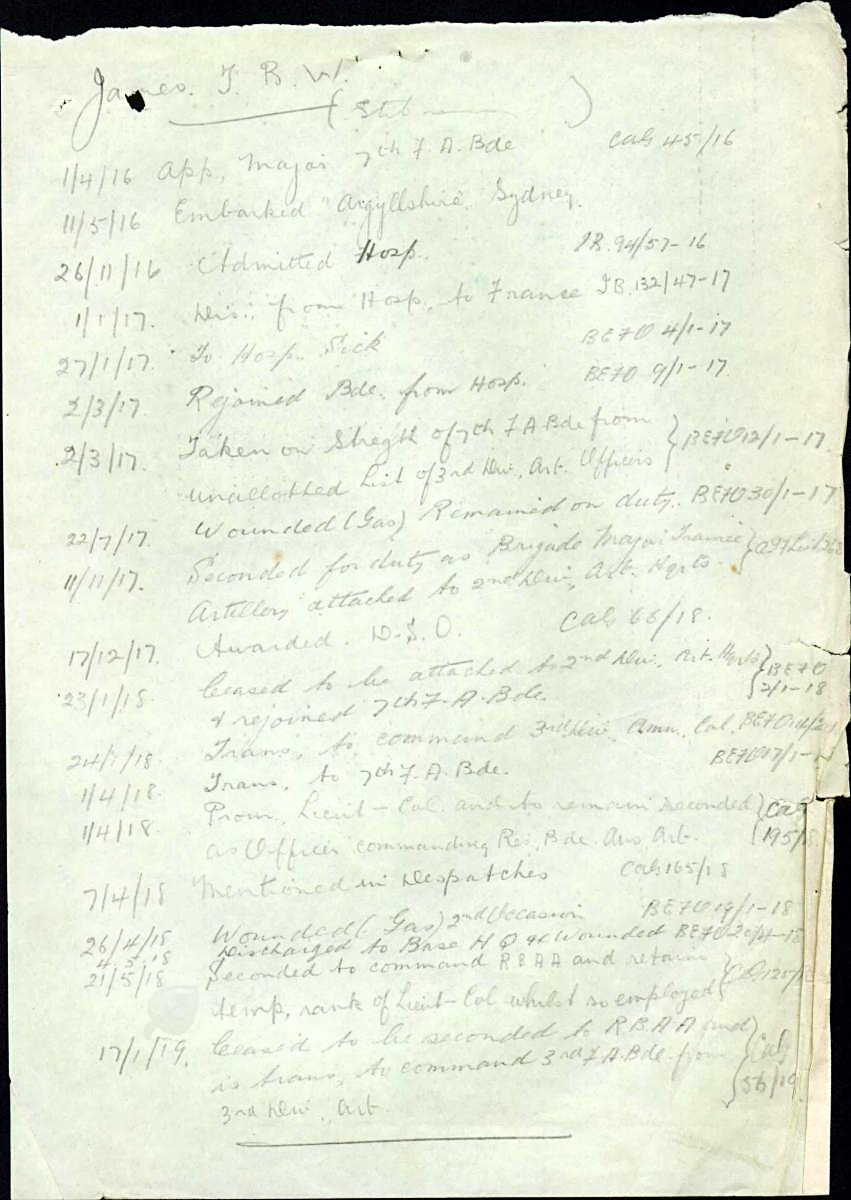 James. T. B. W.
(Stib )
1/4/16 App, Major 7th F. A. Bde CaG 45/16
11/5/16 Embarked "Argyllshire" Sydney.
26/11/16 Admitted Hosp. IB. 94/57-16
1/1/17. Dis., from Hosp. to France IB. 132/47-17
27/1/17. To Hosp. Sick BEFO 4/1-17
2/3/17. Rejoined Bde. from Hosp. BEFO 9/1-17.
2/3/17. Taken on Stregth of 7th F A Bde from
unallotted List of 3rd Div, Art. Officers } BEFO 12/1-17
22/7/17. Wounded (Gas) Remained on duty. BEFO 30/1-17
11/11/17. Seconded for duty as Brigade Major Trainee
Artillery attached to 2nd Div, Art. Hqrts. }
17/12/17. Awarded. D.S.O. CaG 66/18.
23/1/18. Ceased to be attached to 2nd Div. Art. Hqrts } BEFO
& rejoined 7th F.A. Bde. 2/1-18
24/1/18. Trans, to command 3rd Div. Amn. Col. BEFO
1/4/18. Trans, to 7th F. A. Bde. BEFO 17/1-
1/4/18. Prom, Lieut-Col. and to remain seconded } CaG
as Officer commanding Res, Bde. Aus, Art. 195/
7/4/18 Mentioned in Despatches CaG 165/18
26/4/18 Wounded (Gas) 2nd Occasion BEFO 19/1-18
4.5.18 Discharged to Base H Q Wounded BEFO 20/4-18
21/5/18 Seconded to command RBAA and retains
temp, rank of Lieut-Col whilst so employed }
17/1/19. Ceased to be seconded to R.B.A A and
is trans, to command 3rd F.A. Bde. from } CaG
3rd Div, Art. 56/19